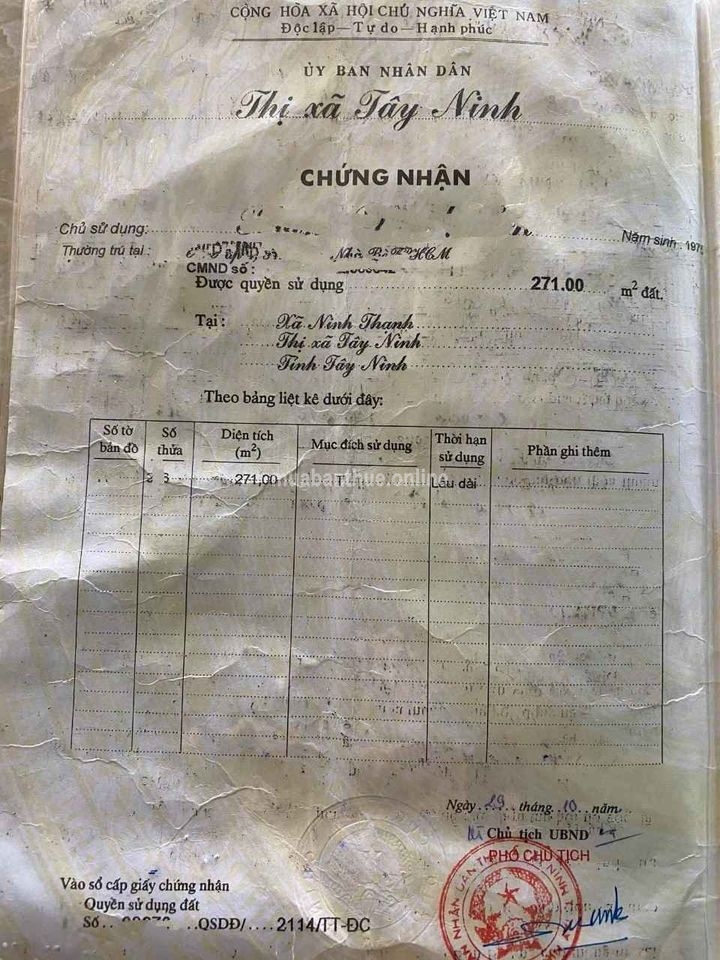 CỘNG HÒA XÃ HỘI CHỦ NGHĨA VIỆT NAM
Độc lập – Tự do – Hạnh phúc
ỦY BAN NHÂN DÂN
Thị xã Tây Ninh
CHỨNG NHẬN
Chủ sử dụng:
Năm sinh : 197
Thường trú tại : Nhà Bè HCM
CMND số :
Được quyền sử dụng 271.00 m² đất.
Tại : Xã Ninh Thạnh
Thị xã Tây Ninh
Tỉnh Tây Ninh
Theo bảng liệt kê dưới đây:
Số tờ bản đồ Số thửa Diện tích (m²) Mục đích sử dụng Thời hạn sử dụng Phần ghi thêm
271,00 T Lâu dài
muabanthue.online
Ngày 29 tháng 10 năm
Chủ tịch UBND
PHÓ CHỦ TỊCH
Vào sổ cấp giấy chứng nhận
Quyền sử dụng đất
Số QSDĐ/ 2114/TT-ĐC